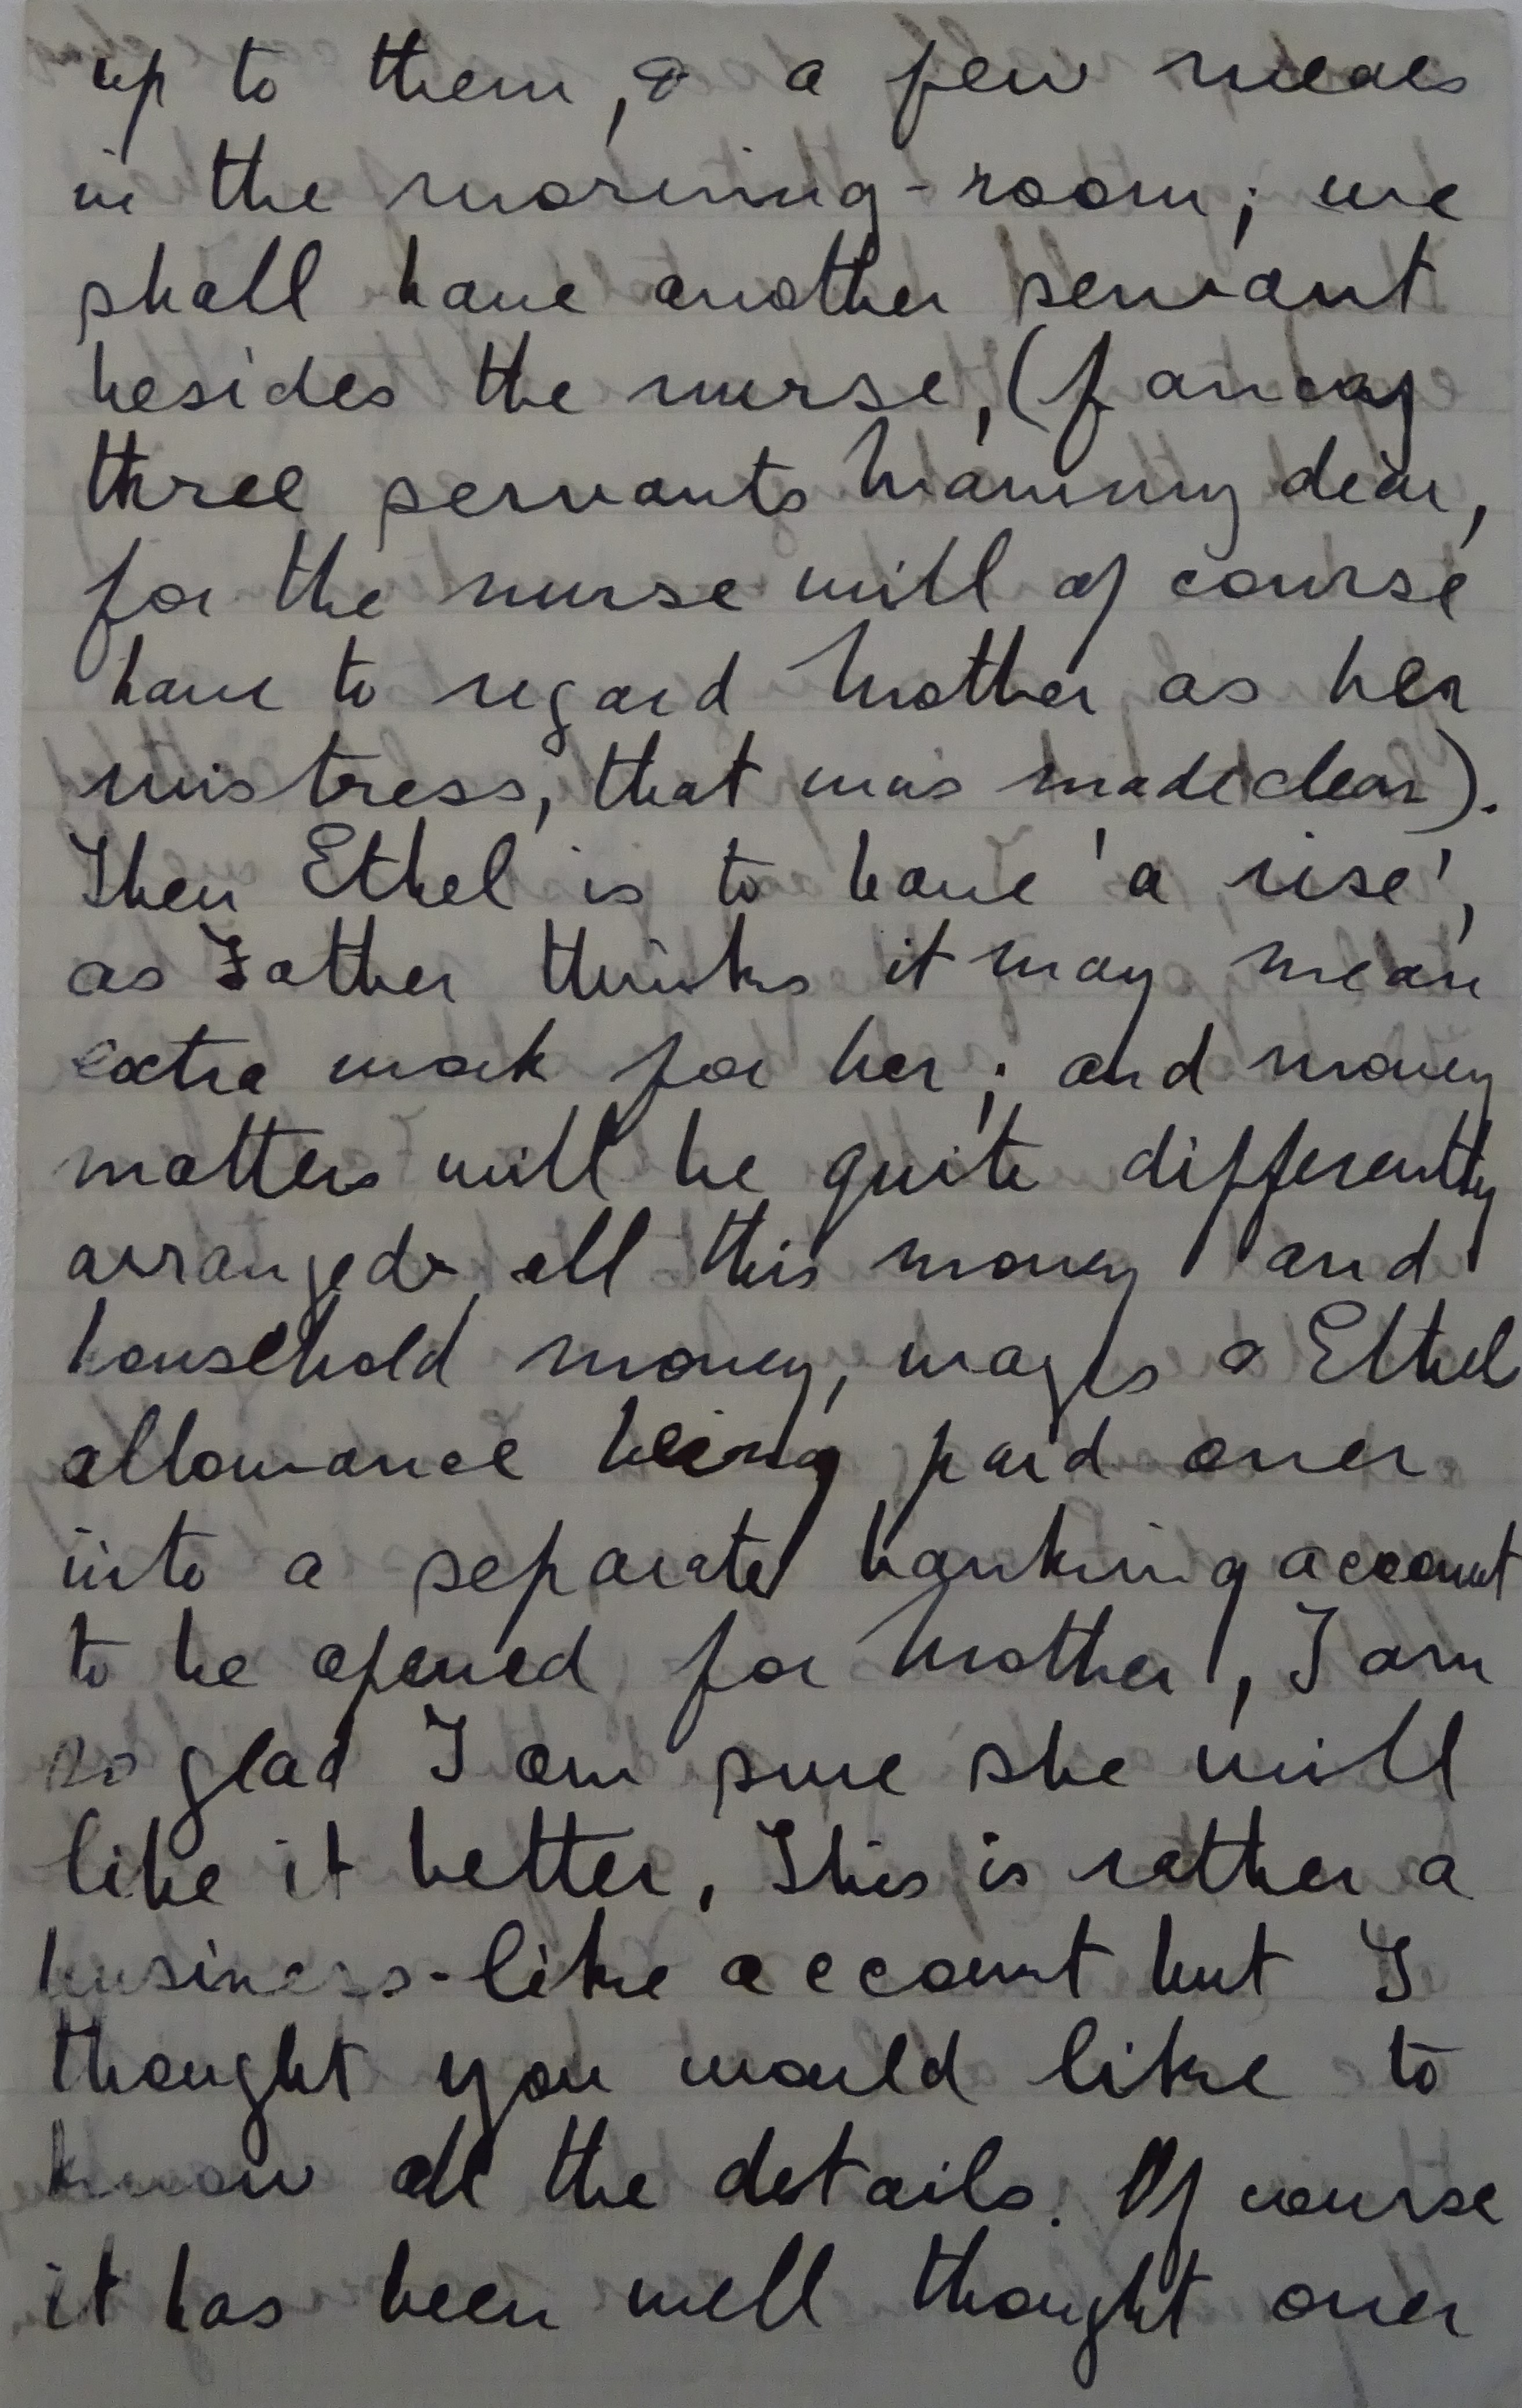 up to them, & a few meals
in the morning-room; we
shall have another servant
besides the nurse, (fancy
three servants Mammy dear,
for the nurse will of course
have to regard Mother as her
mistress, that was made clear).
Then Ethel is to have 'a rise',
as Father thinks it may mean
extra work for her; and money
matters will be quite differently
arranged, all this money and
household money, wages & Ethel
allowance being paid over
into a separate banking account
to be opened for Mother, I am
so glad I am sure she will
like it better. This is rather a
business-like account but I
thought you would like to
know all the details. Of course
it has been well thought over